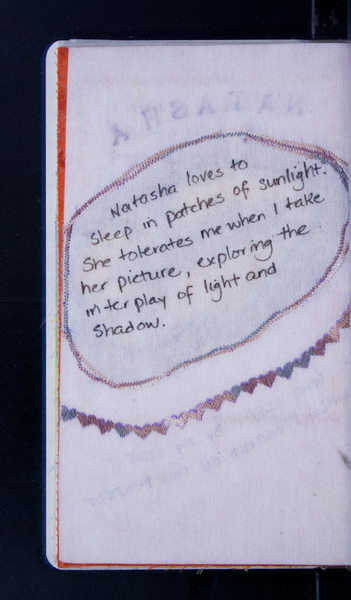 Natasha loves to
sleep in patches of sunlight.
She tolerates me when I take
her picture, exploring the
interplay of light and
shadow.